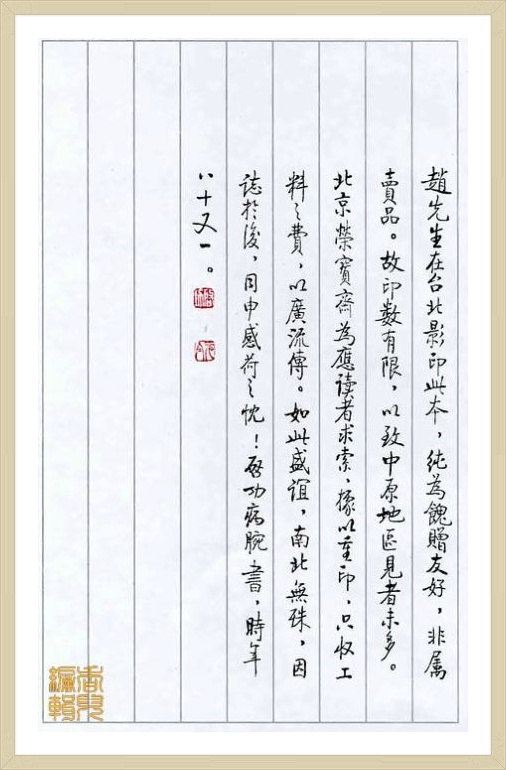 趙先生在台北影印此本，純為餽贈友好，非属
賣品。故印数有限，以致中原地區見者未多。
北京榮寶齋為應读者求索，據以重印，只收工
料之費，以廣流傳。如此盛誼，南北無殊，因
誌於後，同申感荷之忱！啓功病腕書，時年
八十又一。